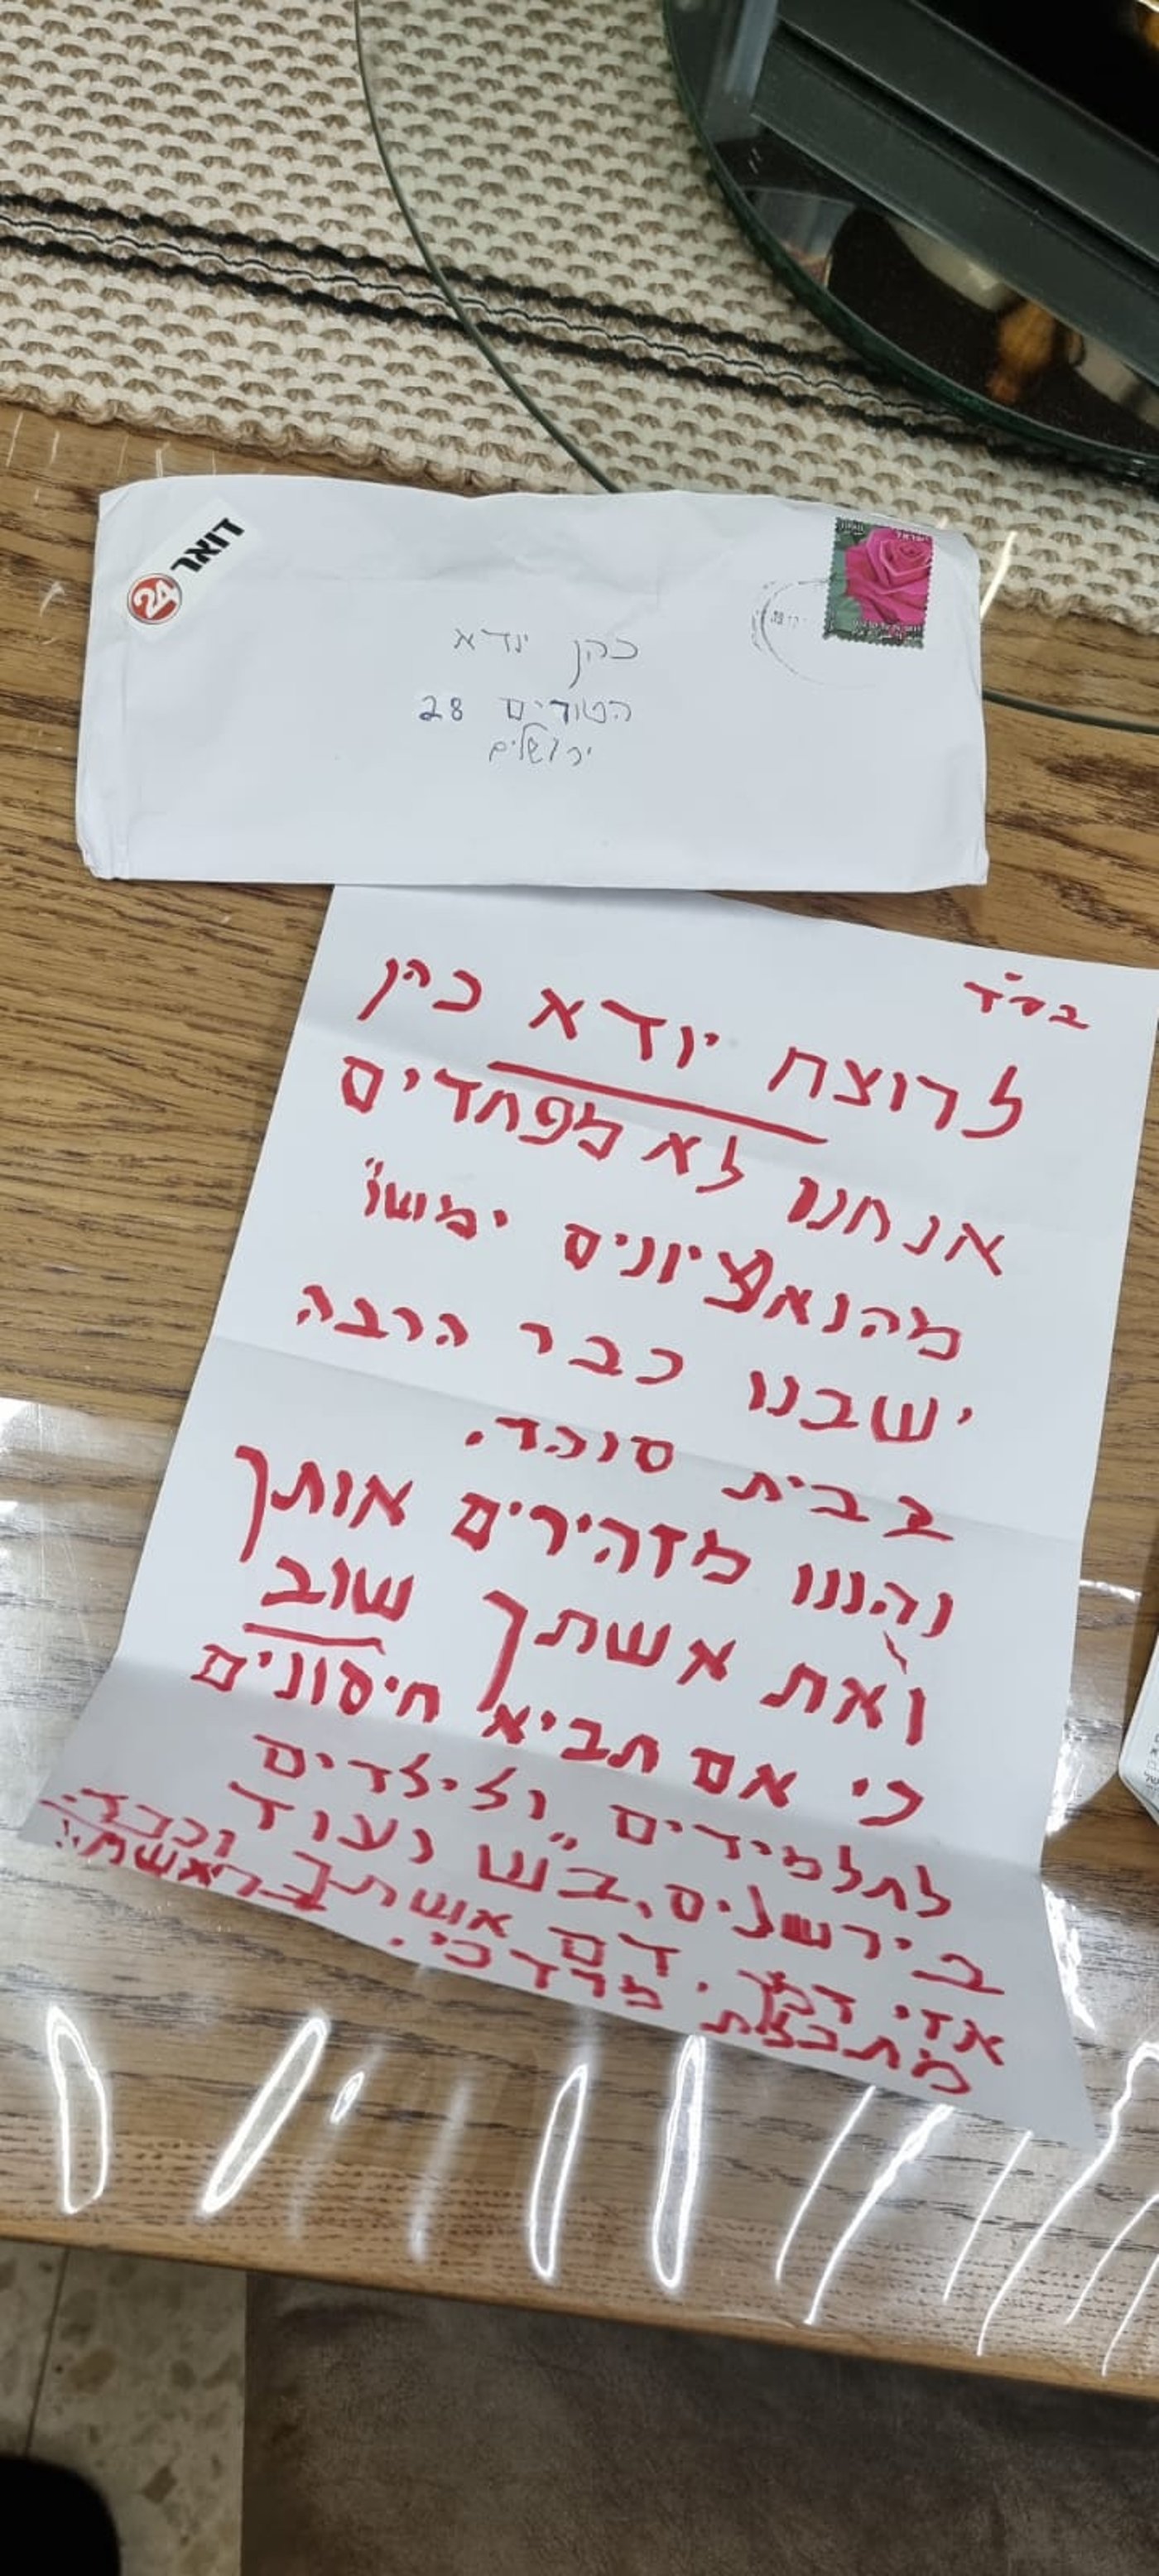 דואר
24
ישראל
כהן יודא
הטורים 28
ירושלים
בס״ד
לרוצח יודא כהן
אנחנו לא מפחדים
מהנאציונים ימשו
ישבנו כבר הרבה
בבית סוהר.
והננו מזהירים אותך
ואת אשתך שוב
כי אם תביא חיסונים
לתלמידים ולילדים
בירשלים, ב״ש ועוד
אזי דמך, דם אשתך וכבר
מתבצת. מרדכי. בראשם